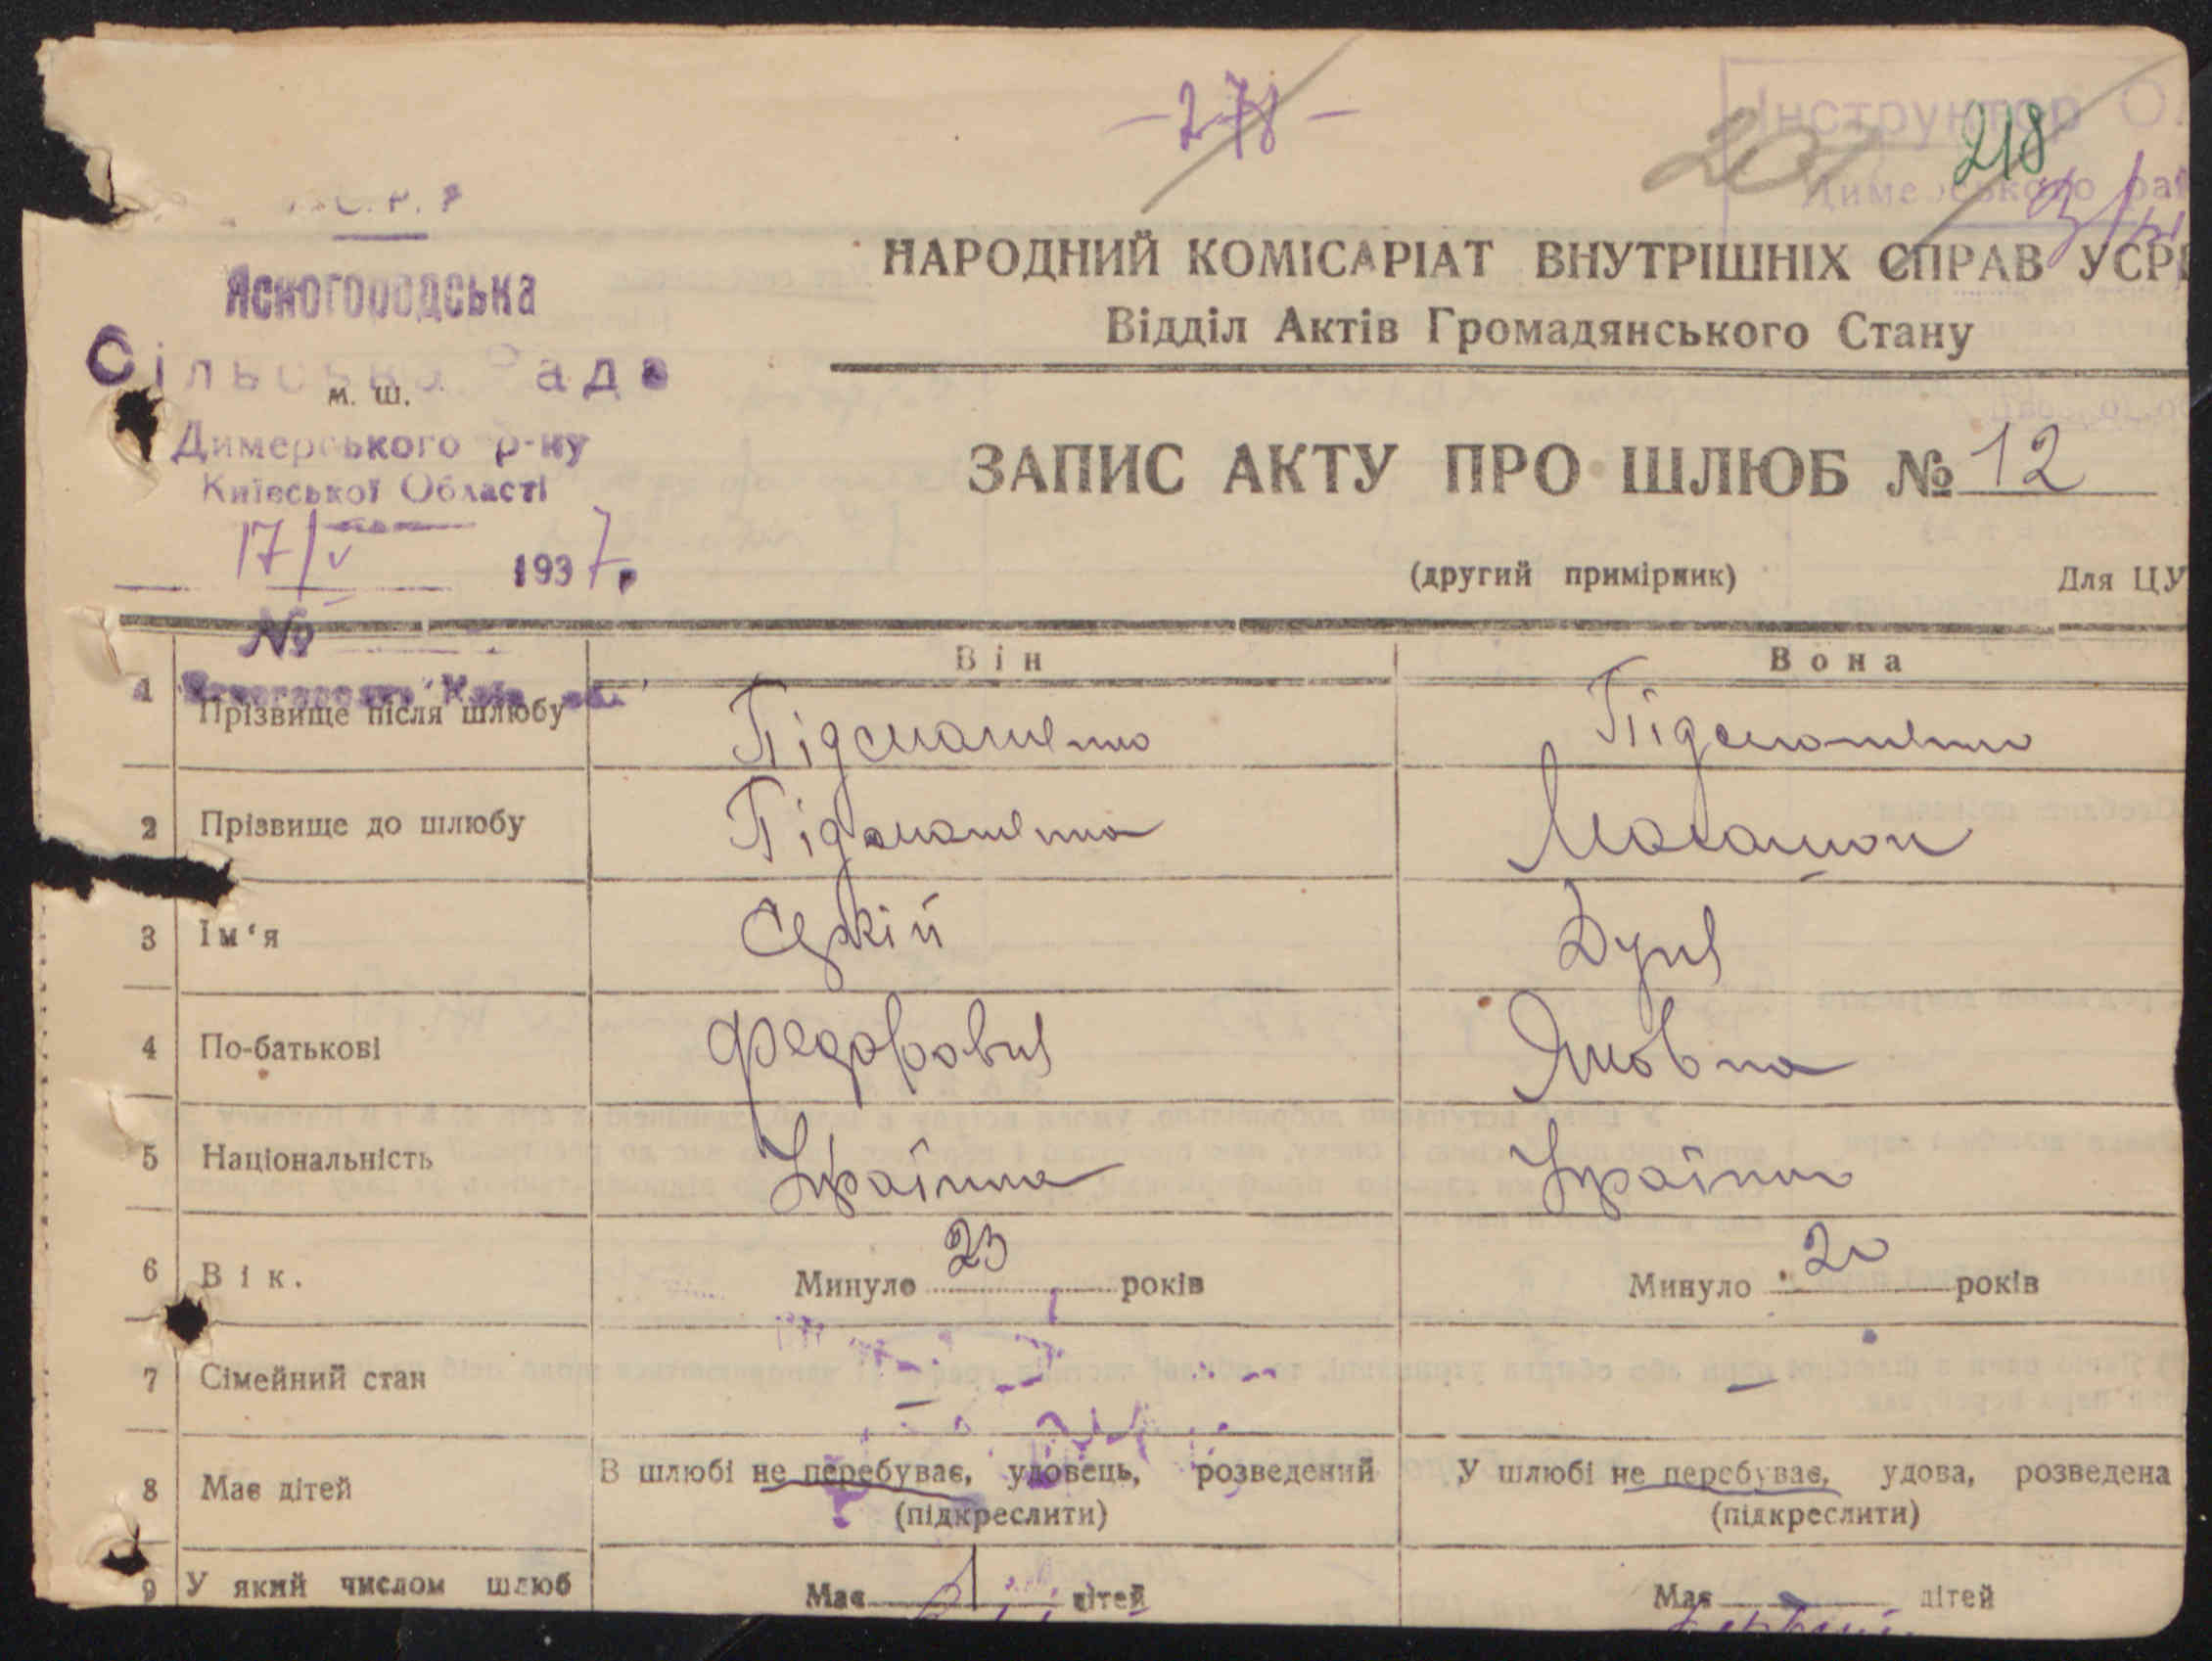 -278-
207
218
Інструктор
Димерського
НАРОДНИЙ КОМІСАРІАТ ВНУТРІШНІХ СПРАВ УСРР
Відділ Актів Громадянського Стану
Ясногородська
Сільська Рада
м. ш.
Димерського р-ну
Київської Області
17/V 1937 р.
№
ЗАПИС АКТУ ПРО ШЛЮБ № 12
(другий примірник) Для ЦУ
Він Вона
1 Прізвище після шлюбу
2 Прізвище до шлюбу
3 Ім‘я Сергій Дуня
4 По-батькові Федорович Яковна
5 Національність Українка Українка
6 Вік. Минуло 23 років Минуло 20 років
7 Сімейний стан — —
8 Має дітей В шлюбі не перебуває, удовець, розведений У шлюбі не перебуває, удова, розведена
(підкреслити) (підкреслити)
9 У який числом шлюб Має дітей Має дітей